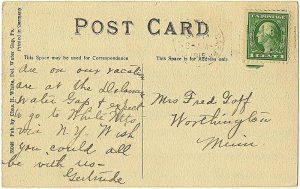 POST CARD
This Space may be used for Correspondence
This Space is for Address only
Pub. by Chas. B. White, Del. Water Gap, Pa.
Printed in Germany
Are on our vacation
are at the Delaware
Water Gap & expect
to go to White Mts
via N.Y. Wish
you could all
be with us-
Gertrude
Mrs Fred Goff
Worthington
Minn
1 CENT 1